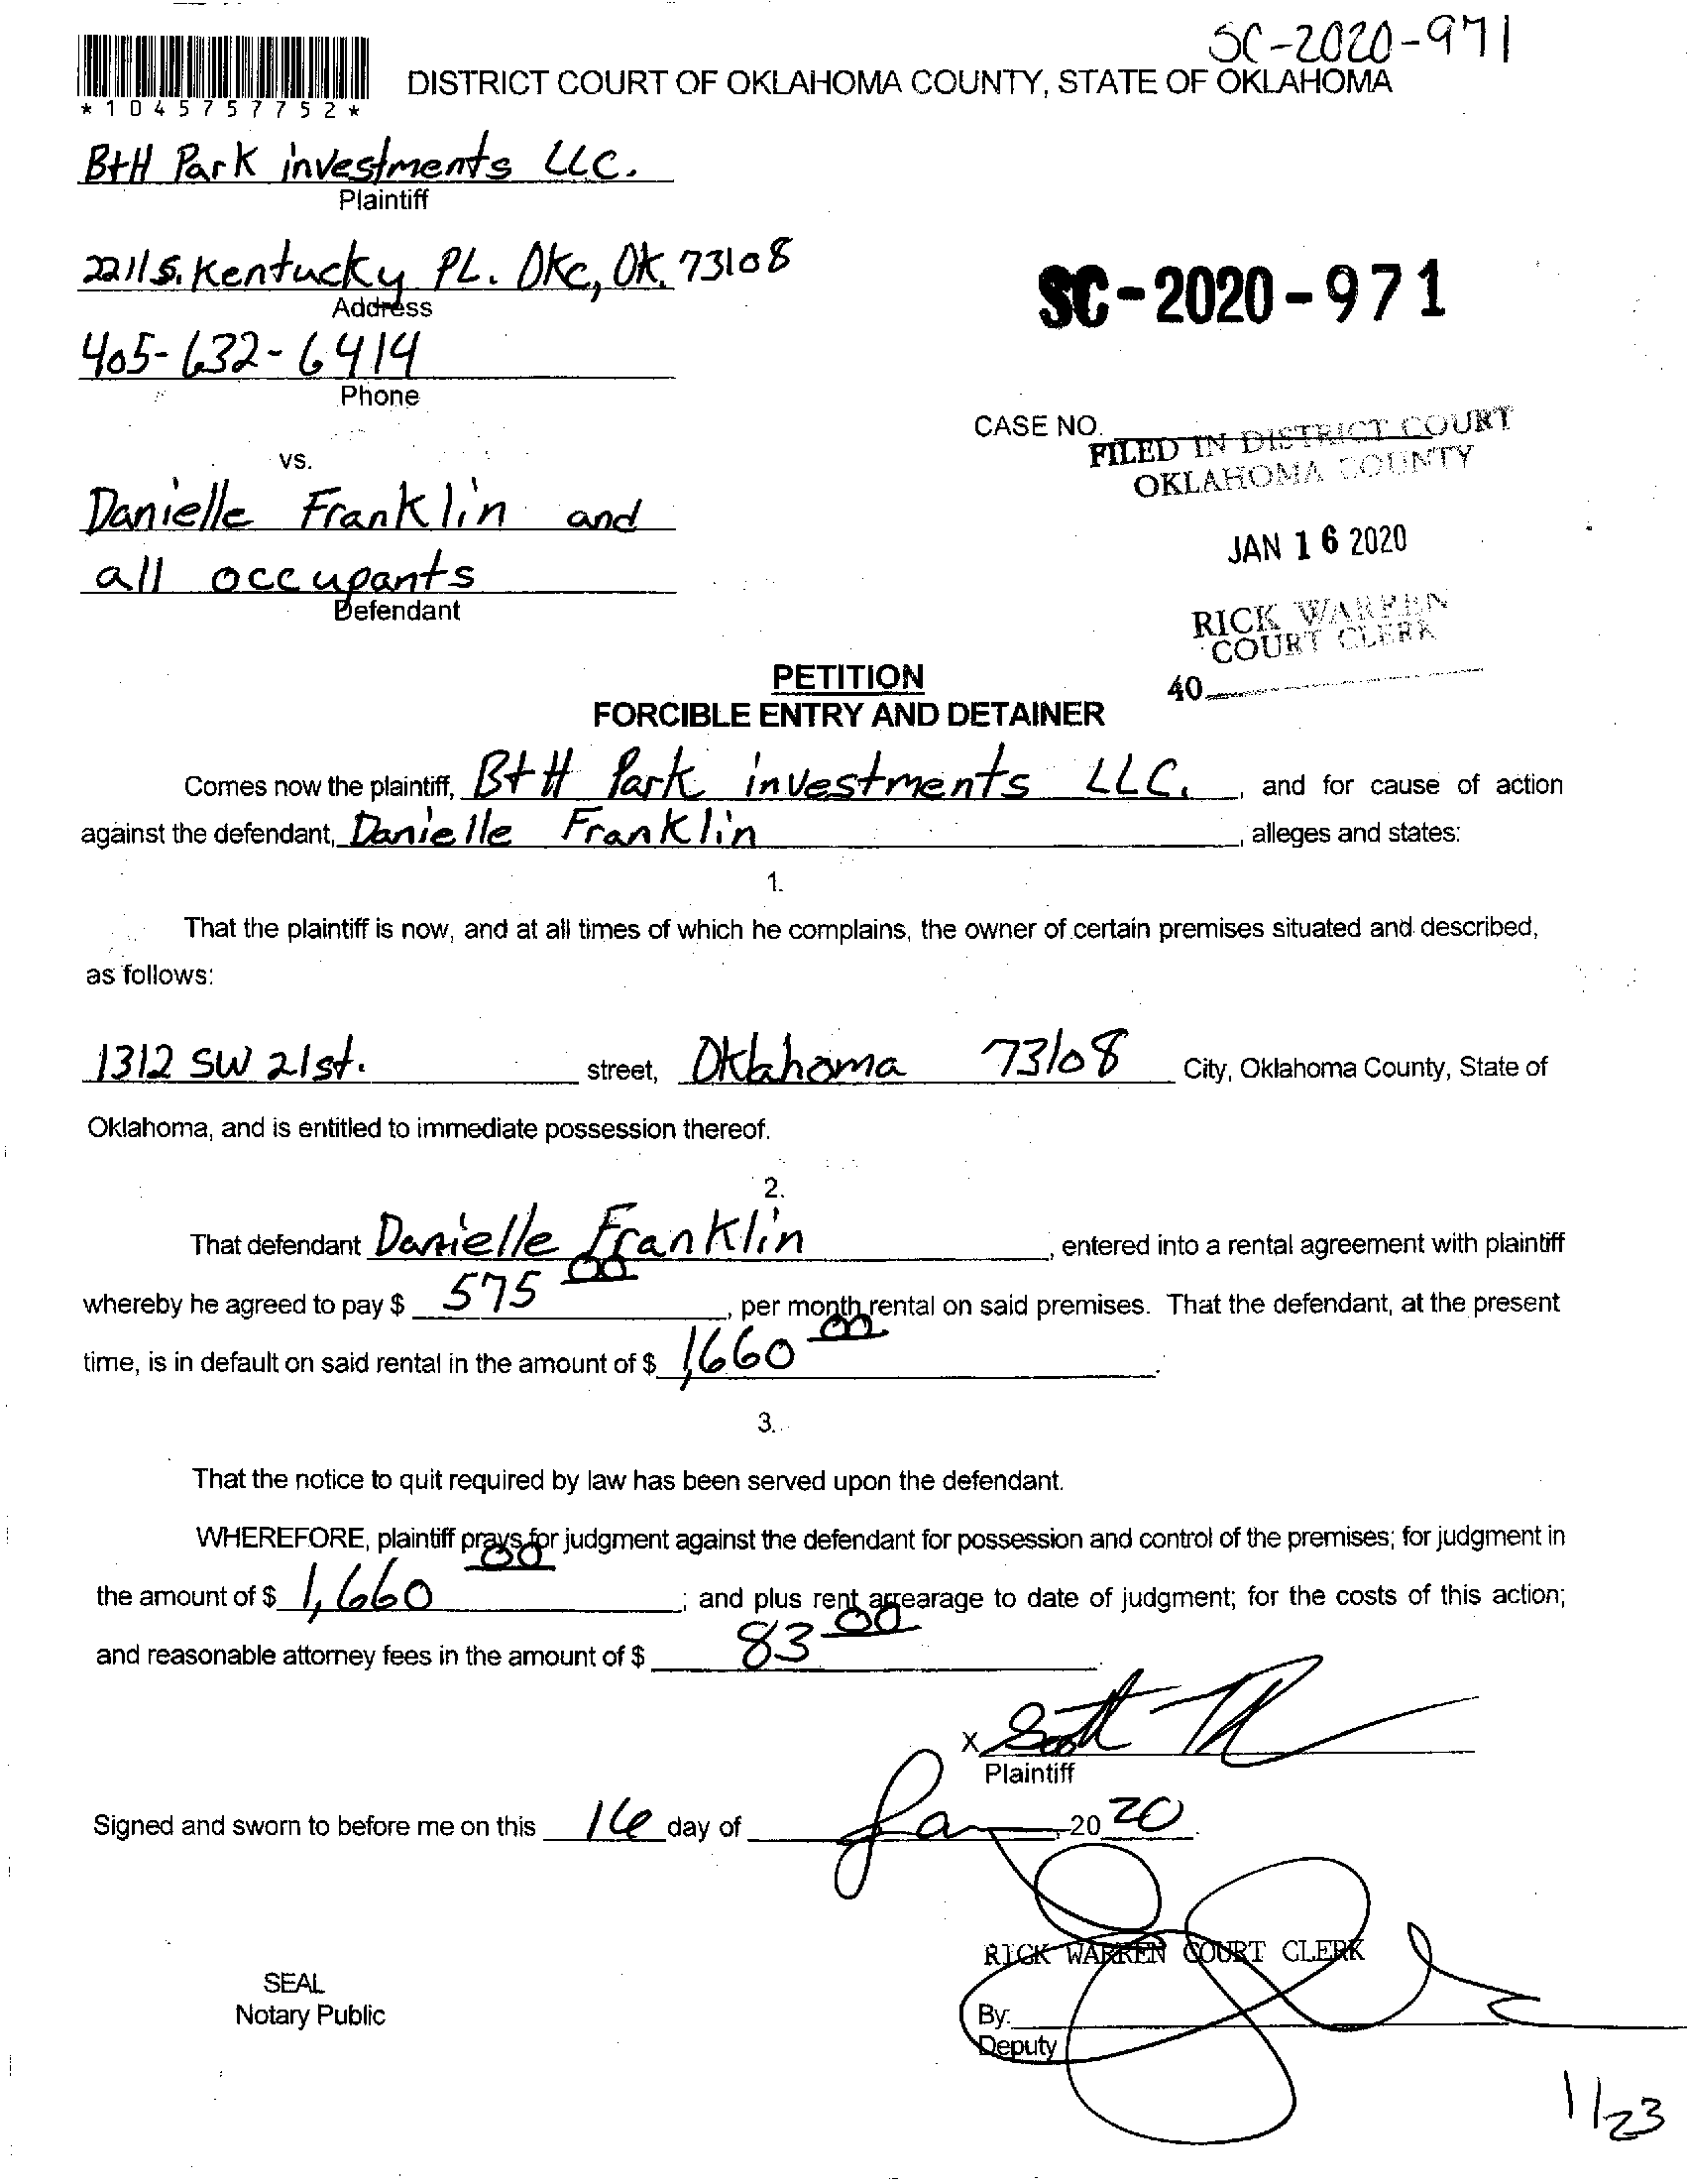 SC-2020-971
*1045757752*
DISTRICT COURT OF OKLAHOMA COUNTY, STATE OF OKLAHOMA
B+H Park investments LLC.
Plaintiff
2211 S. Kentucky PL. OKC, OK. 73108
Address
SC-2020-971
405-632-6414
Phone
CASE NO.
FILED IN DISTRICT COURT
OKLAHOMA COUNTY
vs.
Danielle Franklin and
all occupants
Defendant
JAN 16 2020
RICK WARREN
COURT CLERK
40
PETITION
FORCIBLE ENTRY AND DETAINER
Comes now the plaintiff, B+H Park investments LLC., and for cause of action
against the defendant, Danielle Franklin, alleges and states:
1.
That the plaintiff is now, and at all times of which he complains, the owner of certain premises situated and described,
as follows:
1312 SW 21st. street, Oklahoma 73108 City, Oklahoma County, State of
Oklahoma, and is entitled to immediate possession thereof.
2.
That defendant Danielle Franklin, entered into a rental agreement with plaintiff
whereby he agreed to pay $ 575 00, per month rental on said premises. That the defendant, at the present
time, is in default on said rental in the amount of $ 1,660 00.
3.
That the notice to quit required by law has been served upon the defendant.
WHEREFORE, plaintiff prays for judgment against the defendant for possession and control of the premises; for judgment in
the amount of $ 1,660 00; and plus rent arrearage to date of judgment; for the costs of this action;
and reasonable attorney fees in the amount of $ 83 00
X
Plaintiff
Signed and sworn to before me on this 16 day of Jan, 20 20.
RICK WARREN COURT CLERK
SEAL
Notary Public
By:
Deputy
1/23